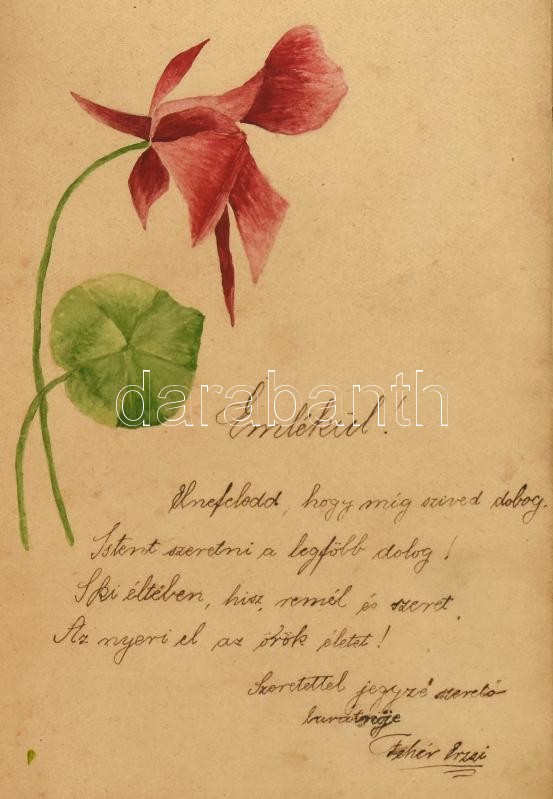 darabanth
Emlékül!
Elnefeledd, hogy míg szived dobog.
Istent szeretni a legföbb dolog!
S ki éltében, hisz, remél és szeret.
Az nyeri el az örök életet!
Szeretettel jegyzé szerető
barátnője
Fehér Erzsi